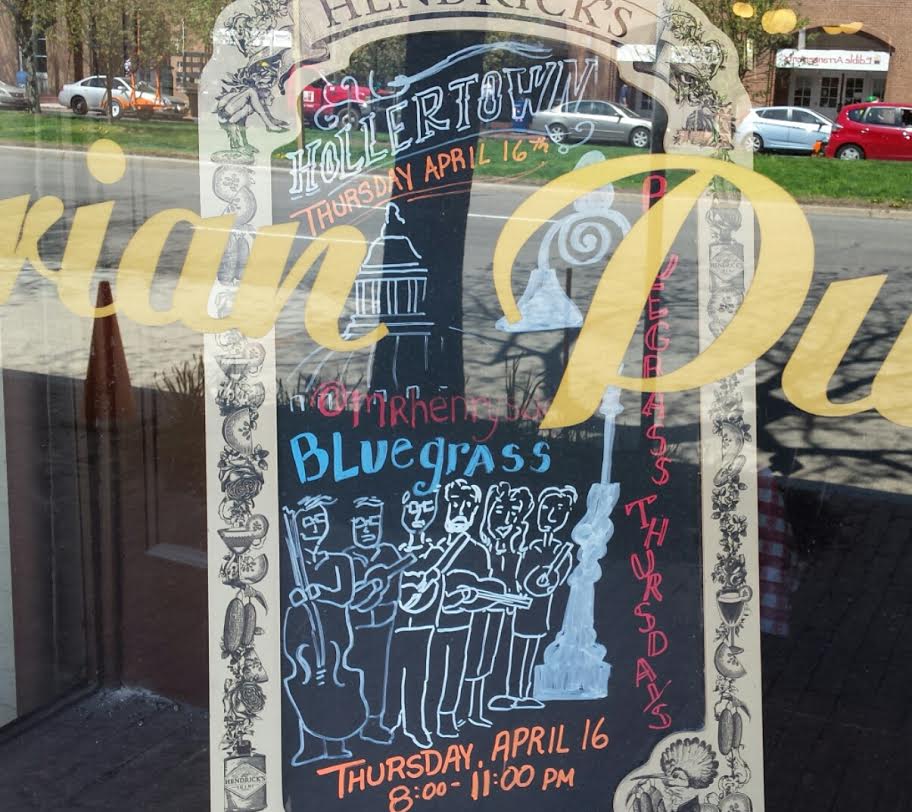 HENDRICK'S
HOLLERTOWN
THURSDAY APRIL 16th
rian Pu
@mRhenry
BLuegrass
THURSDAYS
THURSDAY, APRIL 16
8:00-11:00 PM
Edible Arrangements
HENDRICK'S
HENDRICK'S